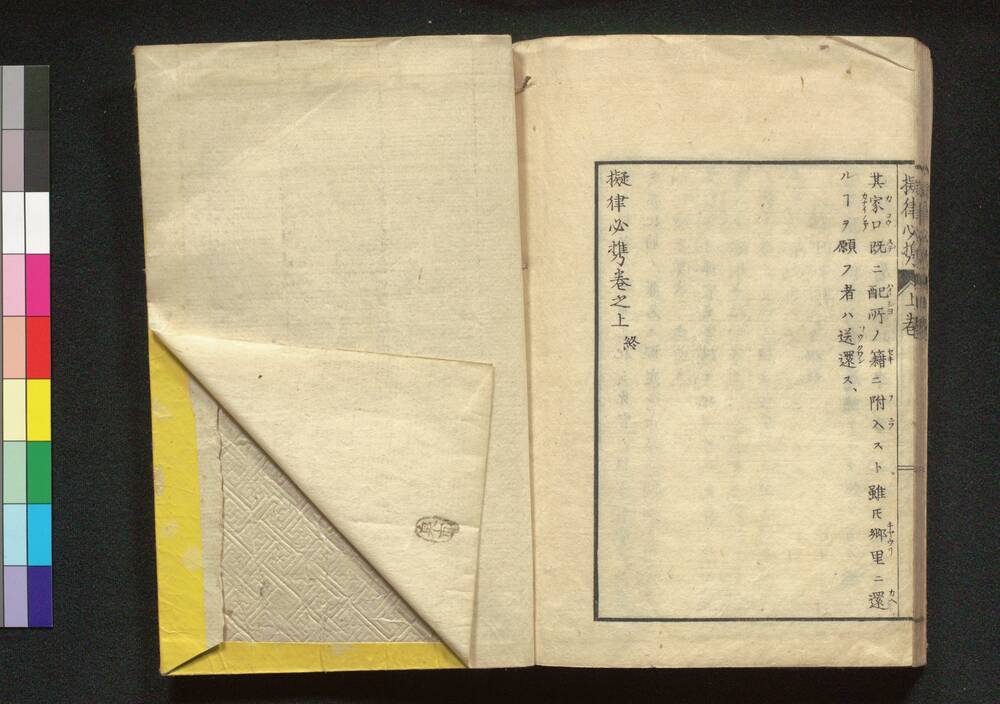 擬律必携 上巻
其家口既ニ配所ノ籍ニ附入スト雖𪜈郷里ニ還
ルヿヲ願フ者ハ送還ス、
擬律必携巻之上 終